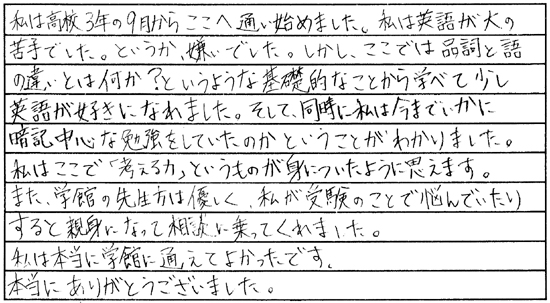 私は高校3年の9月からここへ通い始めました。私は英語が大の
苦手でした。というか、嫌いでした。しかし、ここでは品詞と語
の違いとは何か？というような基礎的なことから学べて少し
英語が好きになれました。そして、同時に私は今までいかに
暗記中心な勉強をしていたのかということがわかりました。
私はここで「考える力」というものが身についたように思えます。
また、学館の先生方は優しく、私が受験のことで悩んでいたり
すると親身になって相談に乗ってくれました。
私は本当に学館に通えてよかったです。
本当にありがとうございました。